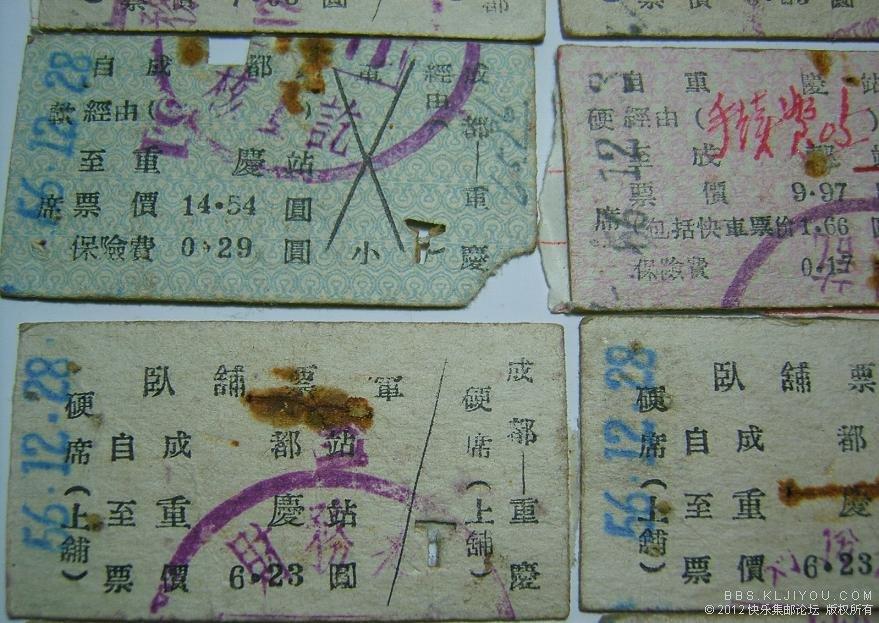 票價
圓
56.12.28
自成 都
軍
經由
成都—重慶
軟經由(
)
至重 慶站
席票價 14.54 圓
保險費 0.29 圓
小
56.12.3
自重 慶站
硬經由(
)
手續費
至成 都站
席
票價 9.97
(包括快車票价1.66
保險費 0.17
56.12.28
臥舖票 軍
硬席(上舖)
自成 都站
至重 慶站
票價 6.23 圓
財務
硬席(上舖)
成都—重慶
56.12.28
臥舖票
硬席(上舖)
自成 都
至重 慶
票價 6.23
BBS.KLJIYOU.COM
©2012 快乐集邮论坛 版权所有